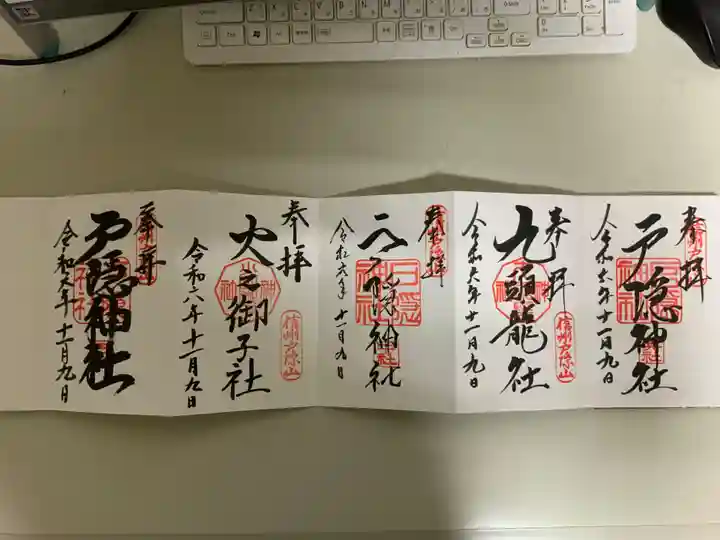 奉拝
戸隠神社
令和六年十一月九日
奉拝
九頭龍社
令和六年十一月九日
信州戸隠山
奉拝
戸隠神社
令和六年十一月九日
奉拝
火之御子社
令和六年十一月九日
信州戸隠山
奉拝
戸隠神社
令和六年十一月九日